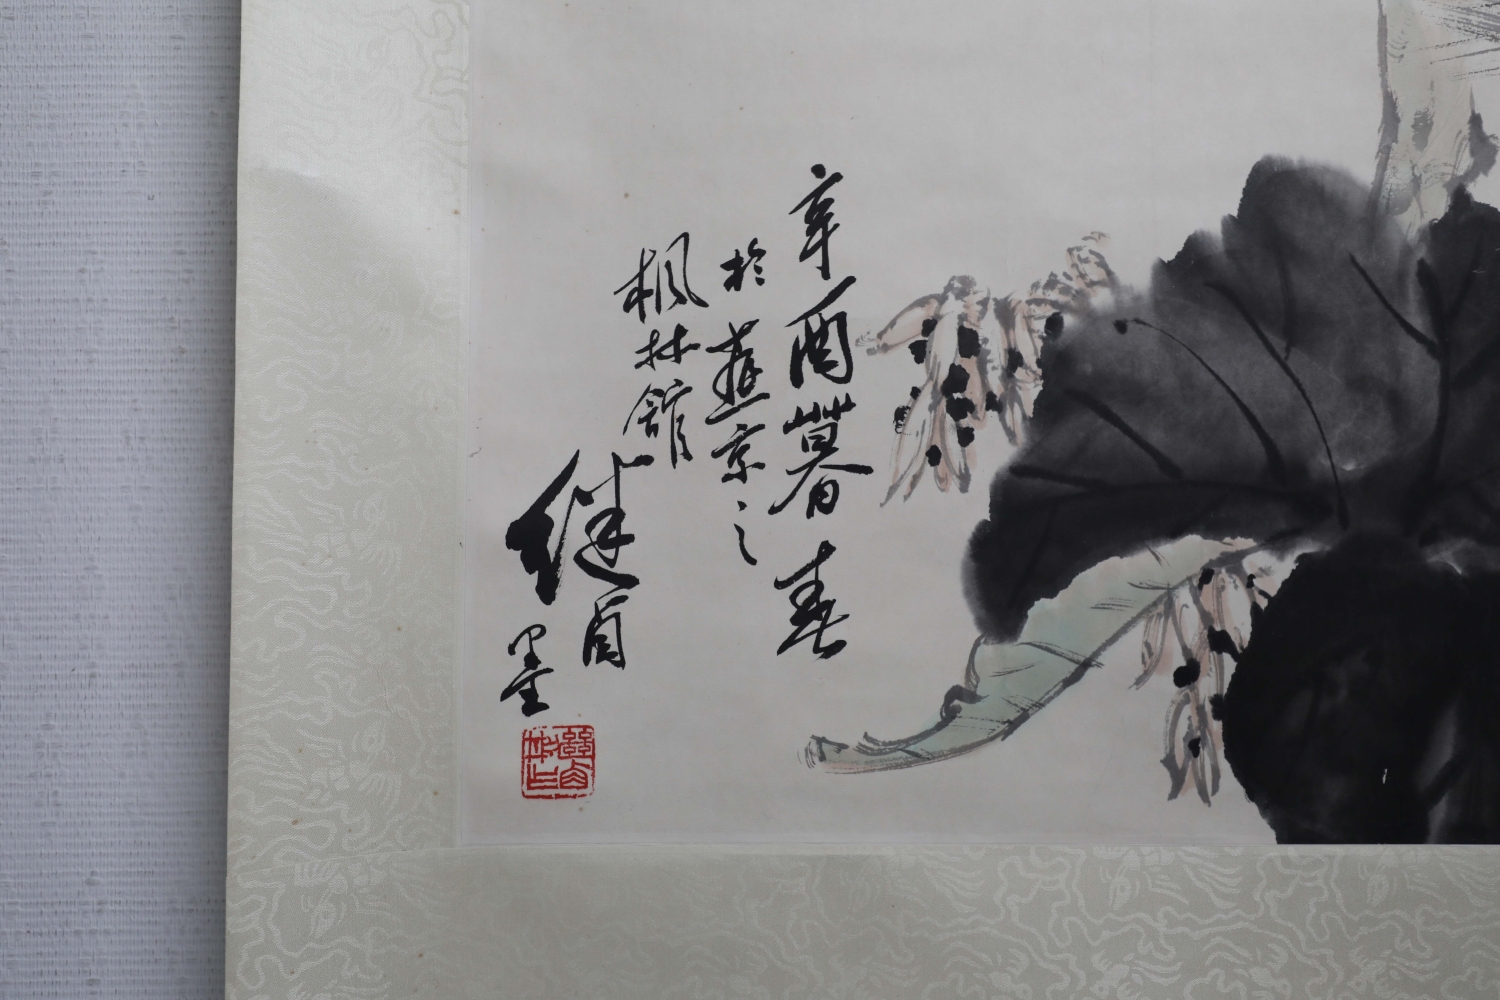 辛酉暮春
於燕京之
枫林館
继卣
墨